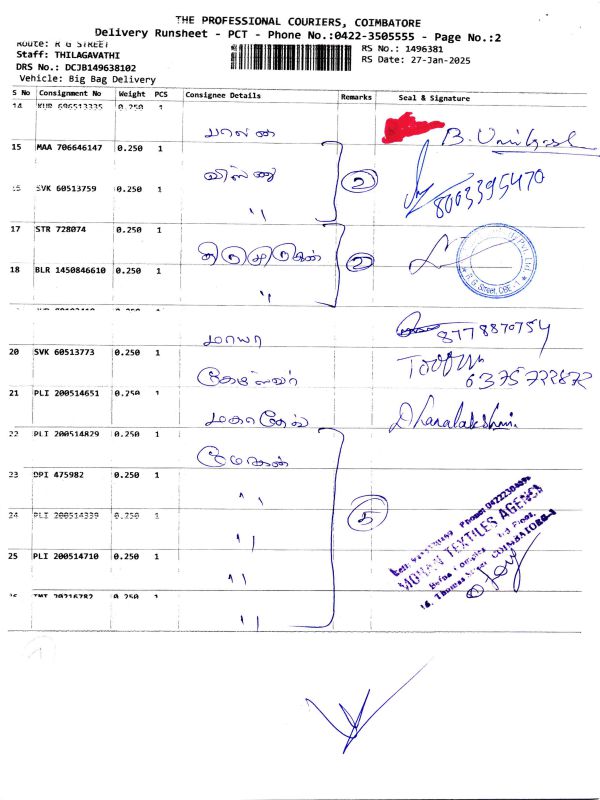 THE PROFESSIONAL COURIERS, COIMBATORE
Delivery Runsheet - PCT - Phone No.:0422-3505555 - Page No.:2
Route: R G STREET
Staff: THILAGAVATHI
DRS No.: DCJB149638102
Vehicle: Big Bag Delivery
RS No.: 1496381
RS Date: 27-Jan-2025
S No Consignment No Weight PCS Consignee Details Remarks Seal & Signature
14 KUR 696513335 0.250 1
15 MAA 706646147 0.250 1 2
SVK 60513759 0.250 1 "
8003395470
17 STR 728074 0.250 1 2
R G Street, CBE
18 BLR 1450846610 0.250 1 "
மாயா 8778870754
20 SVK 60513773 0.250 1
6375722872
21 PLI 200514651 0.250 1 மகாதேவ் Dhanalakshmi
22 PLI 200514829 0.250 1 மோகன்
23 DPI 475982 0.250 1 "
24 PLI 200514339 0.250 1 " 5
MOHAN TEXTILES AGENCY
Thomas Street COIMBATORE-1
25 PLI 200514710 0.250 1 "
20216782 0.250 1 "